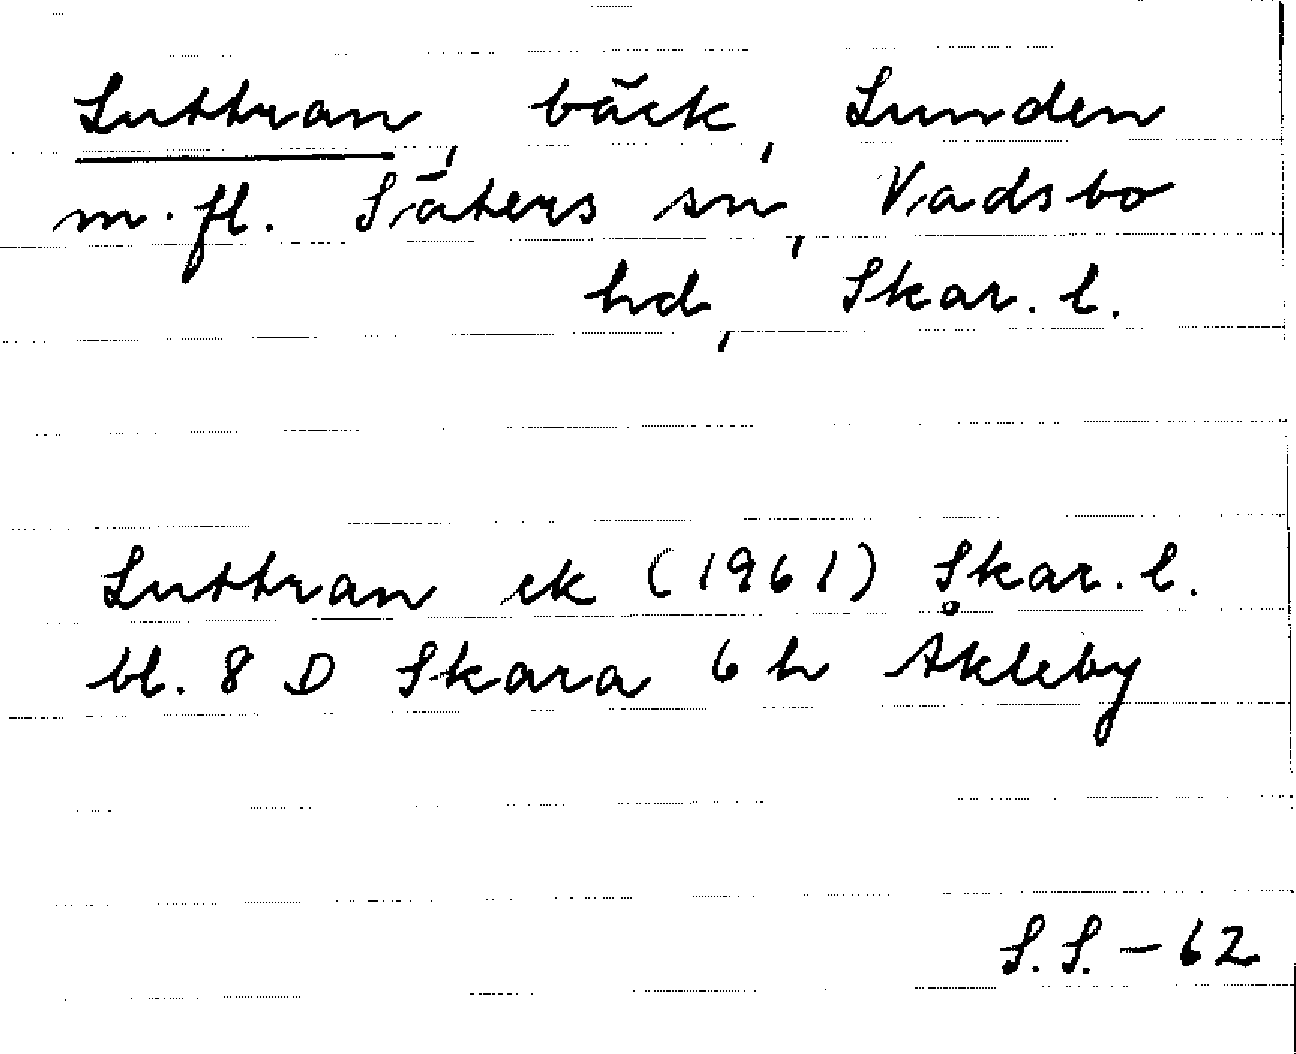 Luttran, bäck, Lunden
m.fl. Säters sn, Vadsbo
hd, Skar. l.
Luttran ek (1961) Skar. l.
bl. 8 D Skara 6 h Åkleby
S.S. - 62